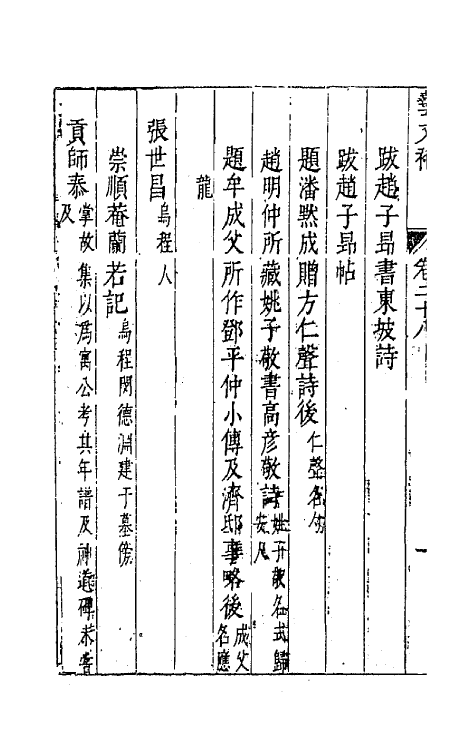 藝文補 卷二十八 一
跋趙子昻書東坡詩
跋趙子昻帖
題潘黙成贈方仁聲詩後仁聲名勺
趙明仲所藏姚子敬書高彦敬詩姚子敬名式歸安人
題牟成父所作鄧平仲小傳及濟邸事略後成父名應
龍
張世昌烏程人
崇順菴蘭若記烏程閔德淵建于墓傍
貢師泰掌故集以爲寓公考其年譜及神道碑未嘗及